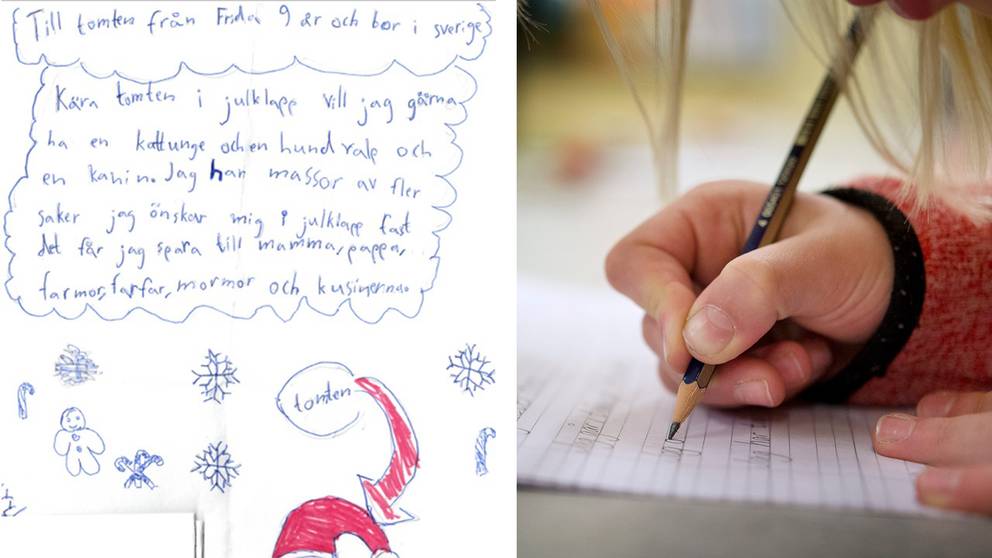 Till tomten från Frida 9 år och bor i sverige
Kära tomten i julklapp vill jag gärna
ha en kattunge och en hundvalp och
en kanin. Jag har massor av fler
saker jag önskar mig i julklapp fast
det får jag spara till mamma, pappa,
farmor, farfar, mormor och kusinerna.
tomten